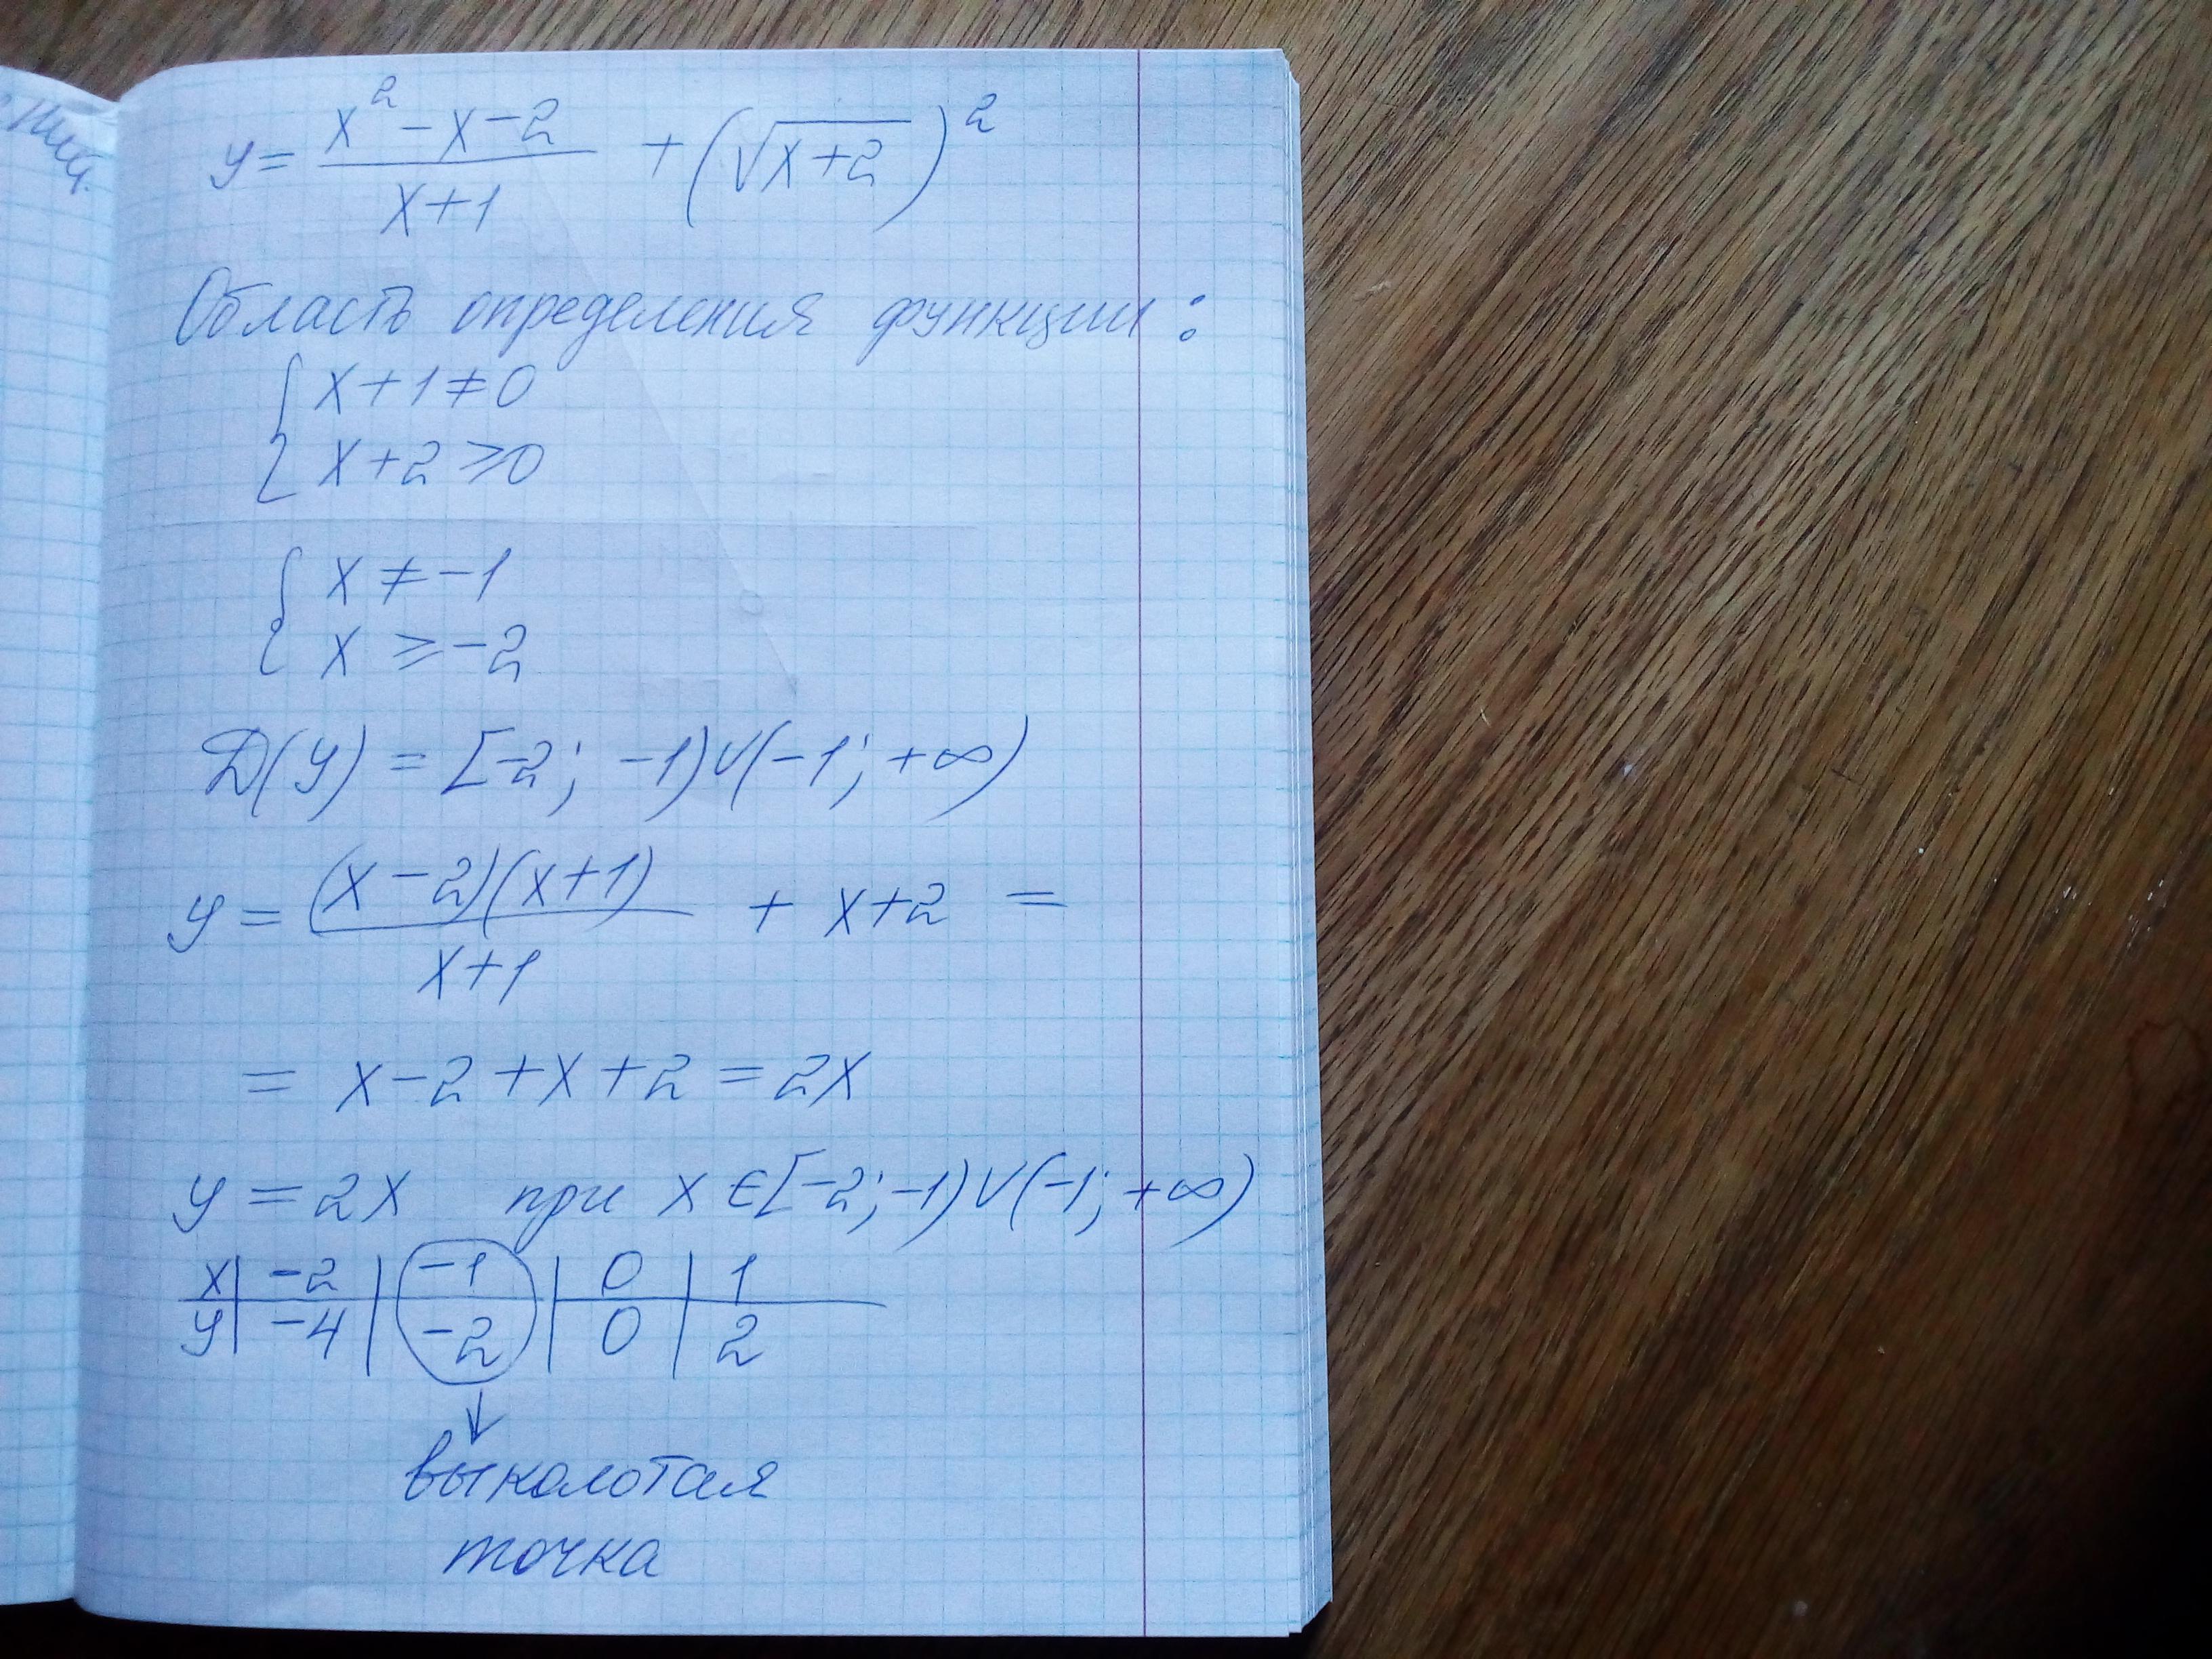 y = (x² - x - 2)/(x+1) + (√(x+2))²
Область определения функции:
{ x + 1 ≠ 0
{ x + 2 ≥ 0
{ x ≠ -1
{ x ≥ -2
D(y) = [-2; -1) ∪ (-1; +∞)
y = (x - 2)(x+1)/(x+1) + x+2 =
= x - 2 + x + 2 = 2x
y = 2x при x ∈ [-2; -1) ∪ (-1; +∞)
x | -2 | -1 | 0 | 1
y | -4 | -2 | 0 | 2
↓
выколотая
точка